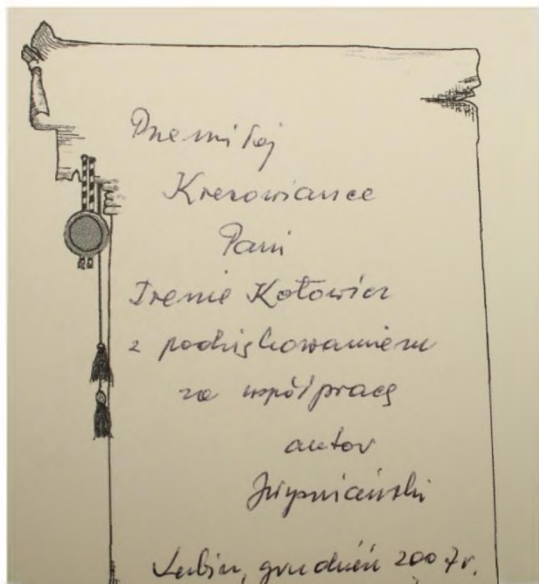 Przemiłej
Kresowiance
Pani
Irenie Kotowicz
z podziękowaniem
za współpracę
autor
Lubin, grudzień 2007r.